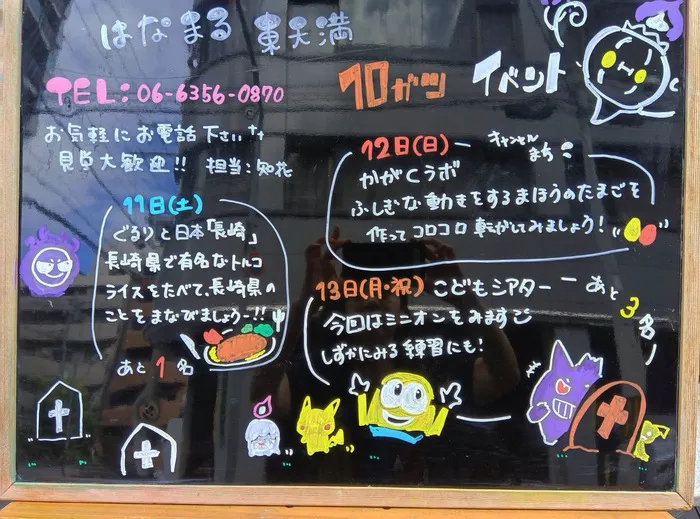 はなまる 東天満
TEL:06-6356-0870
お気軽にお電話下さい
見学大歓迎!! 担当:知花
10ガツ イベント
11日(土)
ぐるりと日本「長崎」
長崎県で有名なトルコ
ライスをたべて、長崎県の
ことをまなびましょう!!
あと1名
12日(日) キャンセルまち
かがくラボ
ふしぎな動きをするまほうのたまごを
作ってコロコロ転がしてみましょう!
13日(月・祝) こどもシアター あと3名
今回はミニオンをみますで
しずかにみる練習にも!